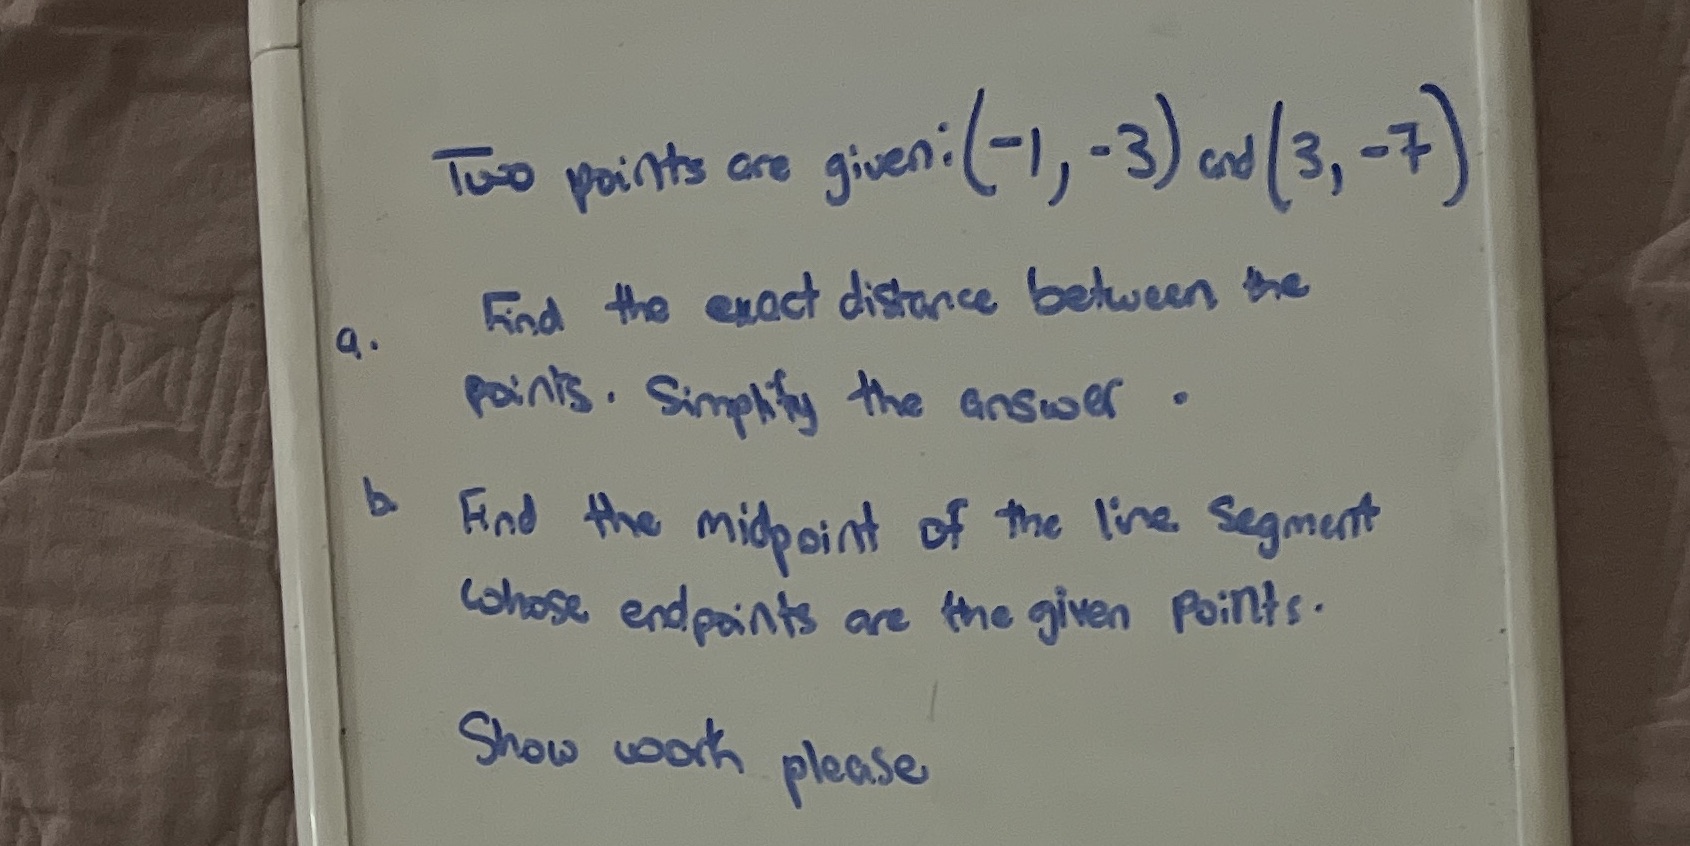 Two points are given: (-1, -3) and (3, -7)
a. Find the exact distance between the
points. Simplify the answer.
b. Find the midpoint of the line segment
whose endpoints are the given points.
Show work please